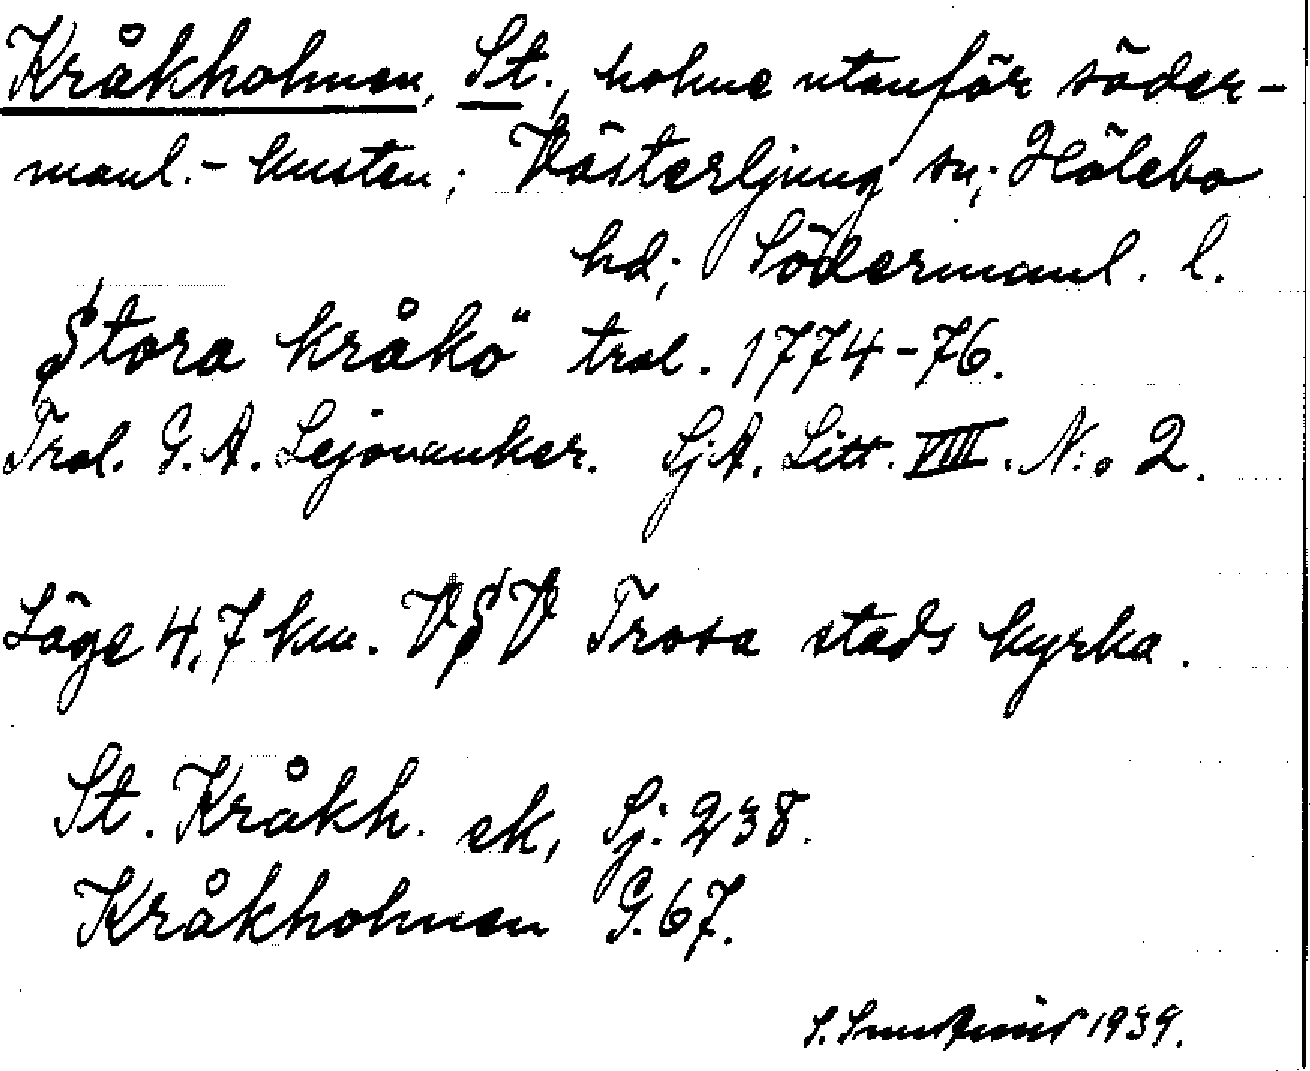 Kråkholmen, St., holme utanför söder-
manl.- kusten; Västerljung sn; Hölebo
hd; Södermanl. l.
Stora kråkö" trol. 1774-76.
Trol. G. A. Lejonanker. SjA. Litt. VIII. N:o 2.
Läge 4,7 km. VSV Trosa stads kyrka.
St. Kråkh. ek, Sj: 238.
Kråkholmen G. 67.
S. 1939.